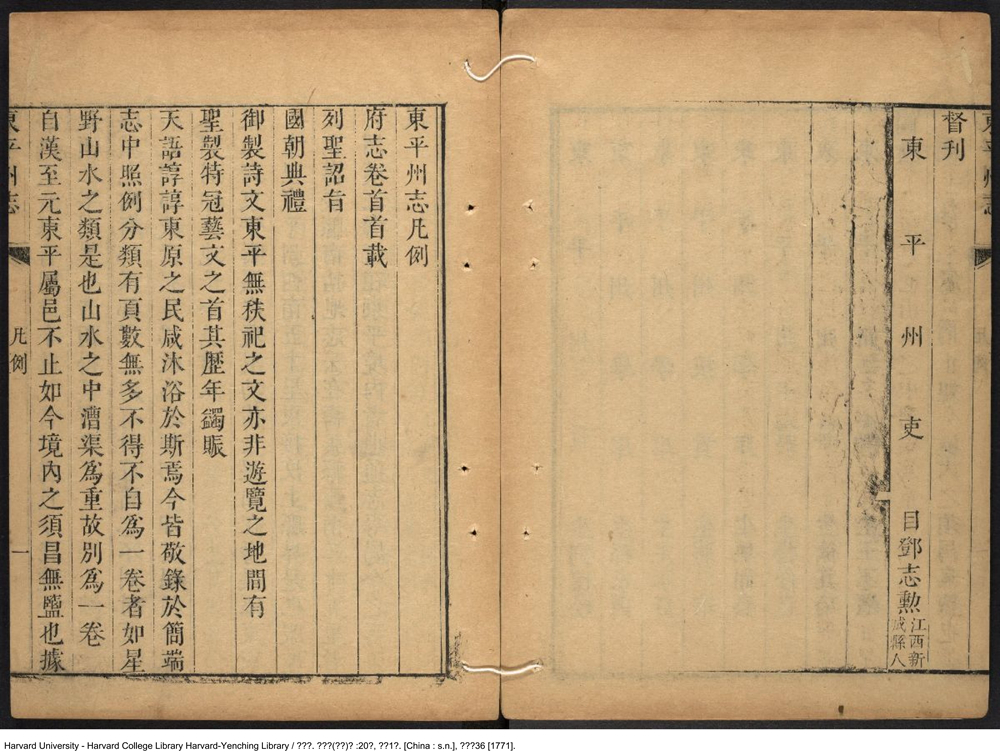 東平州志
督刊
東平州吏目鄧志勲江西新成縣人
東平州志凡例
府志卷首首載
列聖詔旨
國朝典禮
御製詩文東平無秩祀之文亦非遊覽之地間有
聖製特冠藝文之首其歷年蠲賑
天語諄諄東原之民咸沐浴於斯焉今皆敬錄於簡端
志中照例分類有頁數無多不得不自爲一卷者如星
野山水之類是也山水之中漕渠爲重故別爲一卷
自漢至元東平屬邑不止如今境內之須昌無鹽也據
東平州志
凡例
一
Harvard University - Harvard College Library Harvard-Yenching Library / ???. ???(??)? :20?, ??1?. [China : s.n.], ???36 [1771].